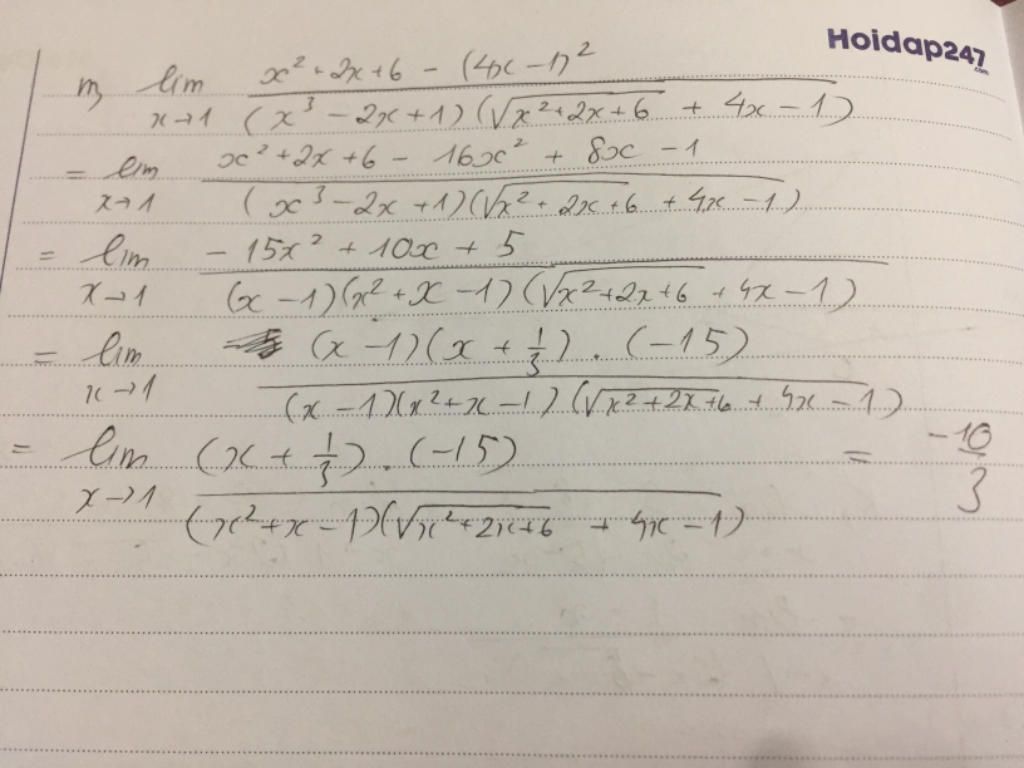 Hoidap247
.com
m, lim x→1 (x² + 2x + 6 - (4x - 1)²) / ((x³ - 2x + 1)(√(x² + 2x + 6) + 4x - 1))
= lim x→1 (x² + 2x + 6 - 16x² + 8x - 1) / ((x³ - 2x + 1)(√(x² + 2x + 6) + 4x - 1))
= lim x→1 (-15x² + 10x + 5) / ((x - 1)(x² + x - 1)(√(x² + 2x + 6) + 4x - 1))
= lim x→1 ((x - 1)(x + 1/3) . (-15)) / ((x - 1)(x² + x - 1)(√(x² + 2x + 6) + 4x - 1))
= lim x→1 ((x + 1/3) . (-15)) / ((x² + x - 1)(√(x² + 2x + 6) + 4x - 1)) = -10/3